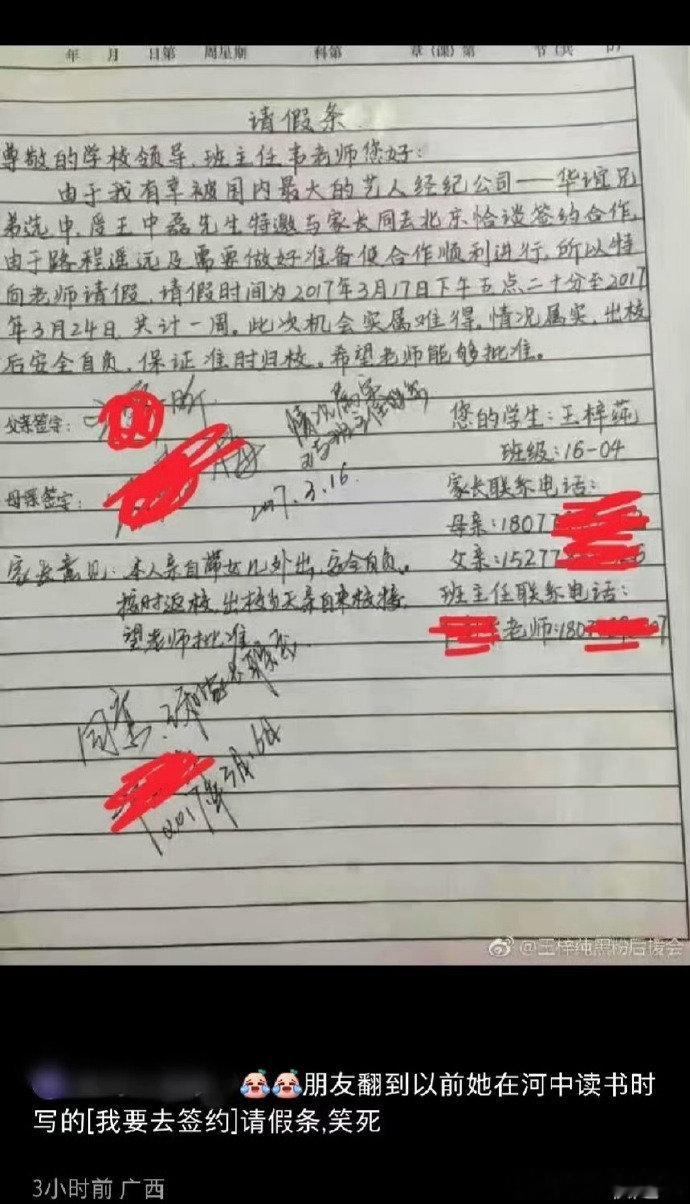 年 月 日第 周星期 科第 章(课)第 节(共
请假条
尊敬的学校领导、班主任韦老师您好：
由于我有幸被国内最大的艺人经纪公司——华谊兄
弟选中，受王中磊先生特邀与家长同去北京恰谈签约合作，
由于路程遥远及需要做好准备使合作顺利进行，所以特
向老师请假，请假时间为2017年3月17日下午五点二十分至2017
年3月24日 共计一周。此次机会实属难得，情况属实，出校
后安全自负，保证准时归校。希望老师能够批准。
父亲签字：
情况属实
2017.3.16
母亲签字：
您的学生：王梓莼
班级：16-04
家长联系电话：
母亲：18077
父亲：15277
班主任联系电话：
老师：180
家长意见：本人亲自带女儿外出，安全自负。
按时返校，出校当天亲自来校接，
望老师批准
同意
@王梓纯黑粉后援会
朋友翻到以前她在河中读书时
写的[我要去签约]请假条,笑死
3小时前 广西